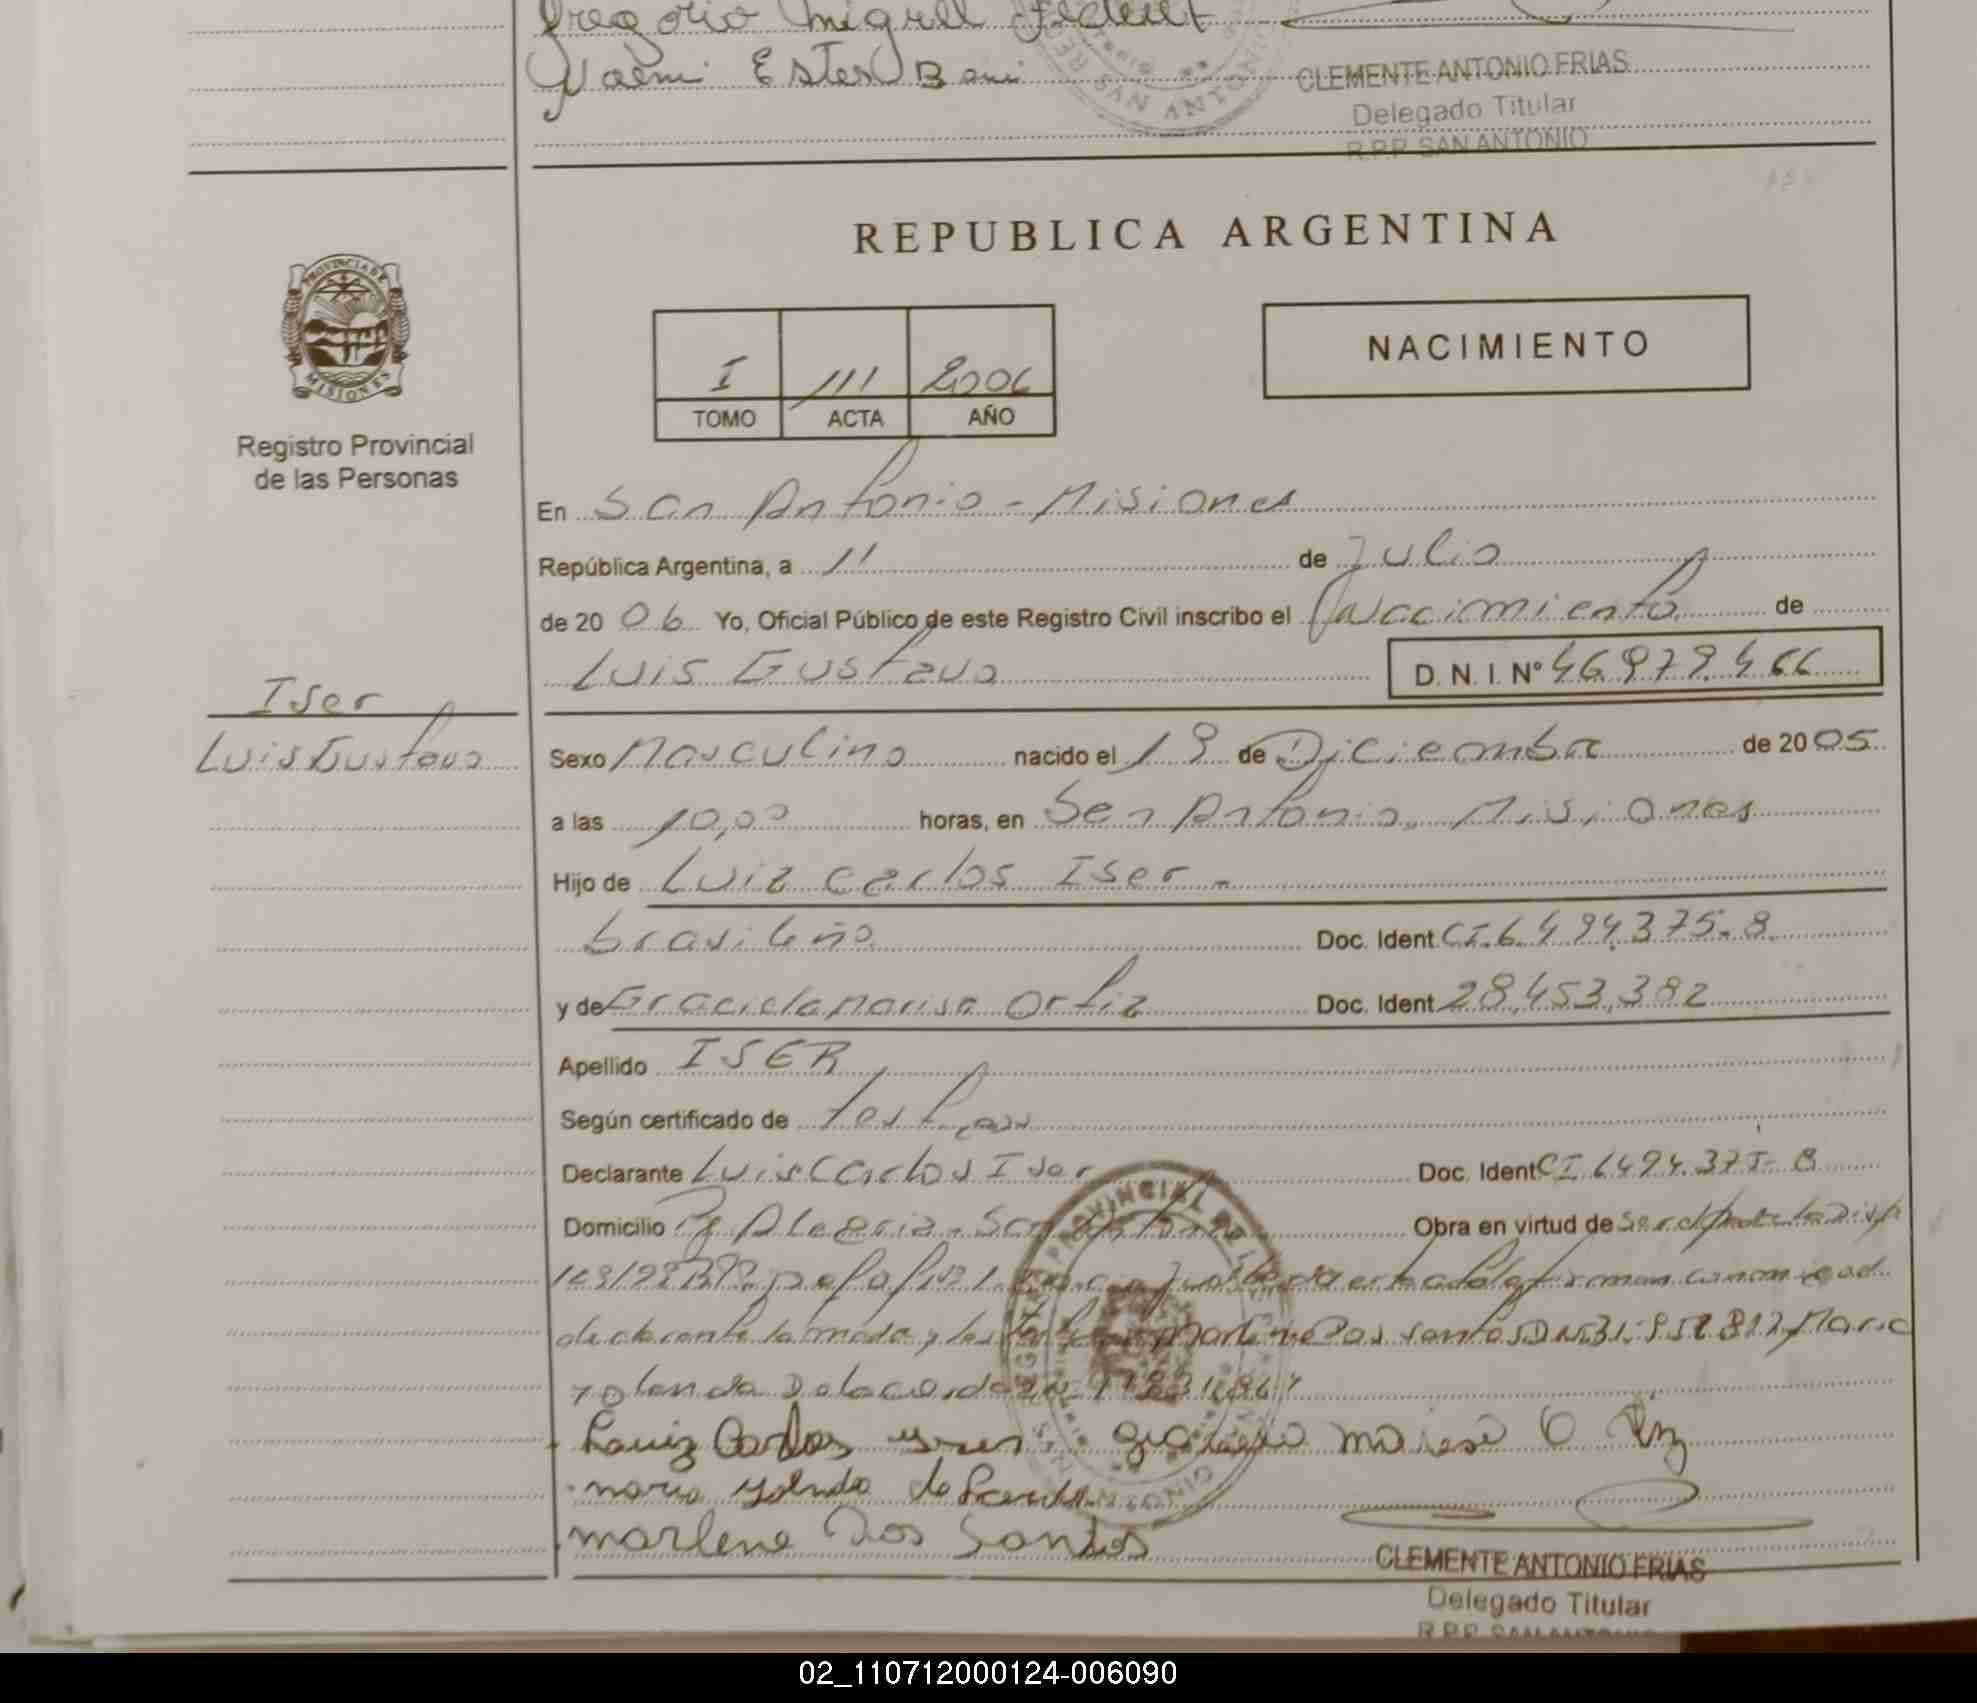 Gregorio Miguel
Noemi Ester B
SAN ANTONIO
CLEMENTE ANTONIO FRIAS
Delegado Titular
R.P.P. SAN ANTONIO
REPUBLICA ARGENTINA
PROVINCIA DE
MISIONES
Registro Provincial
de las Personas
I 111 2006
TOMO ACTA AÑO
NACIMIENTO
En San Antonio - Misiones
República Argentina, a 11 de Julio
de 2006 Yo, Oficial Público de este Registro Civil inscribo el Nacimiento de
Luis Gustavo D. N. I. Nº 46.979.466
Iser
Luis Gustavo
Sexo Masculino nacido el 19 de Diciembre de 2005
a las 10,00 horas, en San Antonio, Misiones
Hijo de Luiz Carlos Iser -
brasileño Doc. Ident. CI. 6.494.375-8
y de Graciela Marisa Ortiz Doc. Ident. 28.453.382
Apellido ISER
Según certificado de testigos
Declarante Luis Carlos Iser Doc. Ident CI 6494.375-8
Domicilio Pje Alegria - San Antonio Obra en virtud de
declarante la madre y los Marlene Dos Santos Maria
Yolanda
Luiz Carlos Iser Graciela Marisa Ortiz
maria Yolanda
marlene Dos Santos
CLEMENTE ANTONIO FRIAS
Delegado Titular
R.P.P. SAN ANTONIO
02_110712000124-006090